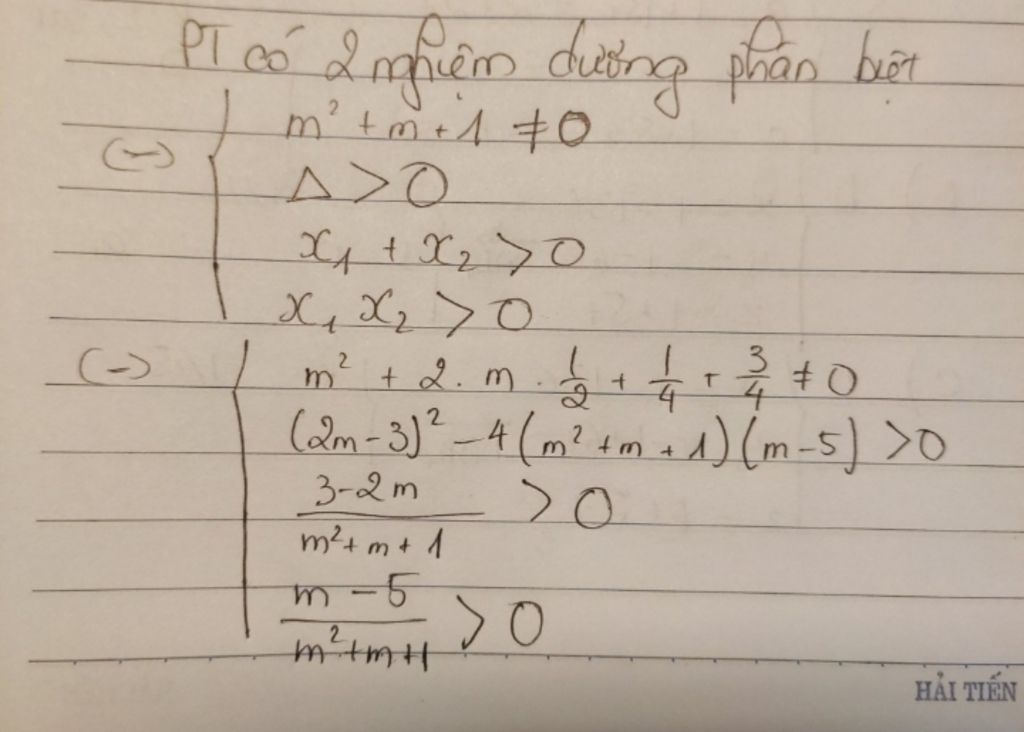 PT có 2 nghiệm dương phân biệt
(-) { m² + m + 1 ≠ 0
Δ > 0
x₁ + x₂ > 0
x₁ x₂ > 0
(-) { m² + 2 . m . 1/2 + 1/4 + 3/4 ≠ 0
(2m - 3)² - 4(m² + m + 1)(m - 5) > 0
3-2m / m²+m+1 > 0
m - 5 / m²+m+1 > 0
HẢI TIẾN